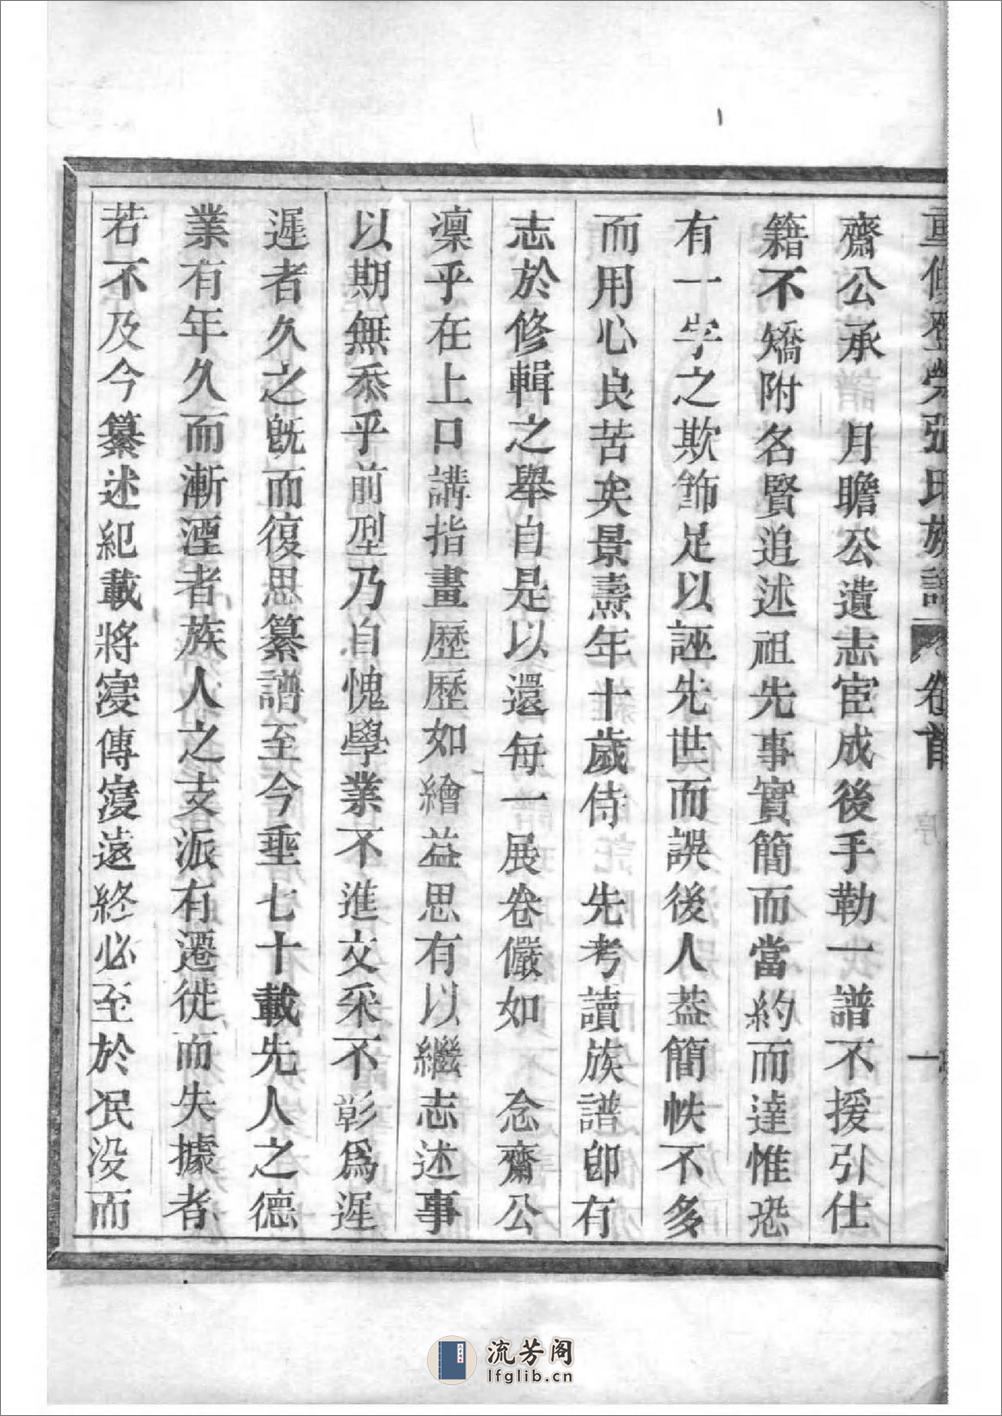 重修登榮張氏族譜 卷首 一
齋公承 月瞻公遺志宦成後手勒一譜不援引仕
籍不矯附名賢追述祖先事實簡而當約而達惟恐
有一字之欺飾足以誣先世而誤後人葢簡帙不多
而用心良苦矣景燾年十歲侍 先考讀族譜卽有
志於修輯之舉自是以還每一展卷儼如 念齋公
凛乎在上口講指畫歷歷如繪益思有以繼志述事
以期無忝乎前型乃自愧學業不進文采不彰爲遲
遲者久之旣而復思纂譜至今垂七十載先人之德
業有年久而漸湮者族人之支派有遷徙而失據者
若不及今纂述紀載將寖傳寖遠終必至於泯没而
流芳阁
lfglib.cn